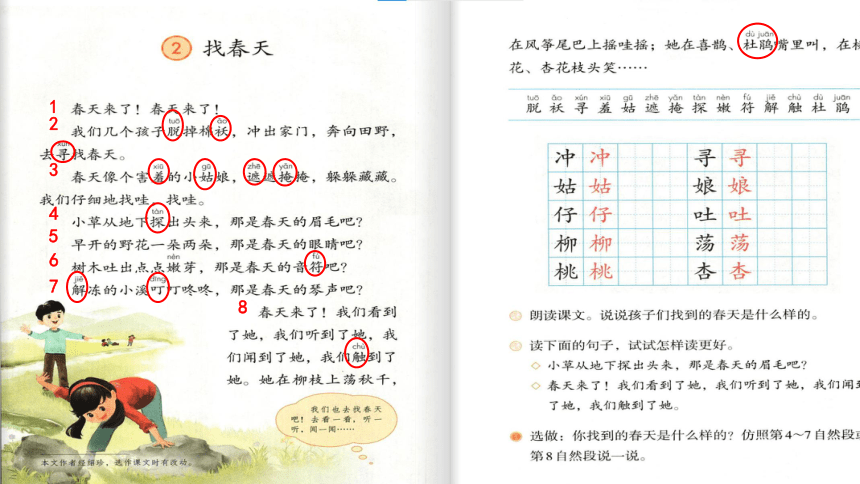 2 找春天
1 春天来了！春天来了！
tuō ǎo
2 我们几个孩子脱掉棉袄，冲出家门，奔向田野，
xún
去寻找春天。
xiū gū zhē yǎn
3 春天像个害羞的小姑娘，遮遮掩掩，躲躲藏藏。
我们仔细地找哇，找哇。
tàn
4 小草从地下探出头来，那是春天的眉毛吧？
5 早开的野花一朵两朵，那是春天的眼睛吧？
nèn fú
6 树木吐出点点嫩芽，那是春天的音符吧？
jiě dīng
7 解冻的小溪叮叮咚咚，那是春天的琴声吧？
8 春天来了！我们看到
了她，我们听到了她，我
chù
们闻到了她，我们触到了
她。她在柳枝上荡秋千，
我们也去找春天
吧！去看一看，听一
听，闻一闻……
本文作者经绍珍，选作课文时有改动。
dù juān
在风筝尾巴上摇哇摇；她在喜鹊、杜鹃嘴里叫，在
花、杏花枝头笑……
tuō ǎo xún xiū gū zhē yǎn tàn nèn fú jiě chù dù juān
脱 袄 寻 羞 姑 遮 掩 探 嫩 符 解 触 杜 鹃
冲 冲 寻 寻
姑 姑 娘 娘
仔 仔 吐 吐
柳 柳 荡 荡
桃 桃 杏 杏
朗读课文。说说孩子们找到的春天是什么样的。
读下面的句子，试试怎样读更好。
◇ 小草从地下探出头来，那是春天的眉毛吧？
◇ 春天来了！我们看到了她，我们听到了她，我们闻到
了她，我们触到了她。
选做：你找到的春天是什么样的？仿照第4～7自然段或
第8自然段说一说。